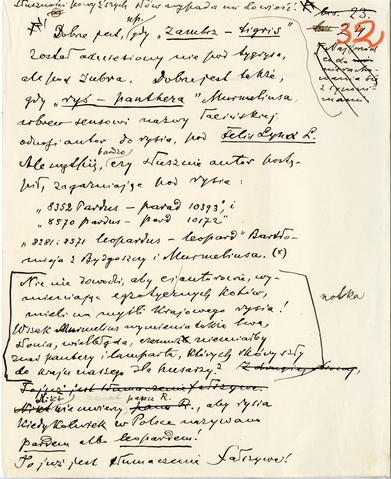 słuszności powyższych słów wypada na dowieść! str. 23.
Dobre jest, np. gdy „Zambr - tigris"
został odniesiony nie pod tygrysa,
ale pod żubra. Dobre jest także,
gdy „rys - panthera" Murmeliusa,
wbrew sensowi nazwy łacińskiej
odnosi autor do rysia, pod Felis Lynx L.
Ale wątpię bardzo, czy słusznie autor postą-
pił, zagarniając pod rysia:
„8352 Pardus - parad 10393; i
„8570 pardus - pard 10172"
„8281. 8371 leopardus - leopard" Bartło-
mieja z Bydgoszczy i Murmeliusa. (x)
Nic nie dowodzi, aby ci autorowie, wy-
mieniając egzotycznych kotów,
mieli na myśli krajowego rysia!
Wszak Murmelius wymienia także lwa,
słonia, wielbłąda, czemuż niemiałby
znać pantery i lamparta, których skóry szły
do kraju naszego dla husarzy? Z drugiej strony,
notka
To już jest tłumaczenie fałszywe.
Nikt nie mówi panu R., aby rysia
kiedykolwiek w Polsce nazywano
pardem albo leopardem!
To już jest tłumaczenie fałszywe!
32